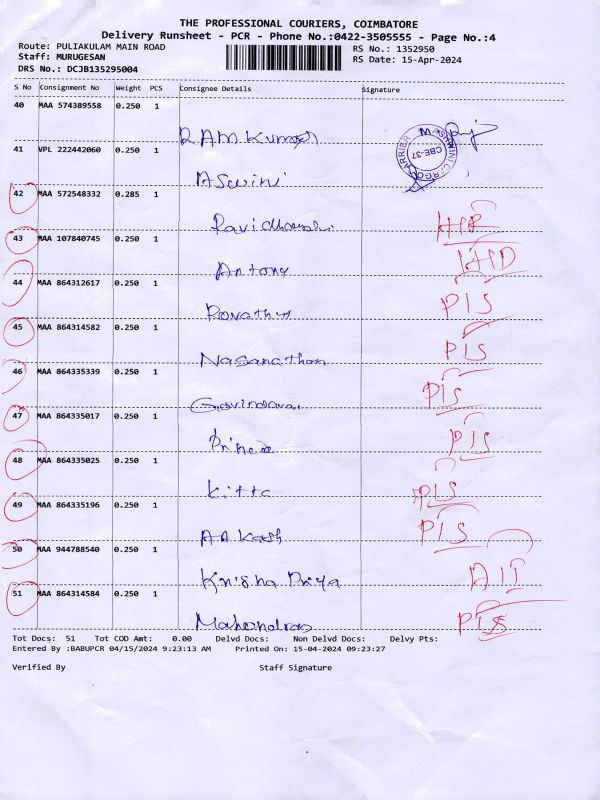 THE PROFESSIONAL COURIERS, COIMBATORE
Delivery Runsheet - PCR - Phone No.:0422-3505555 - Page No.:4
Route: PULIAKULAM MAIN ROAD RS No.: 1352950
Staff: MURUGESAN RS Date: 15-Apr-2024
DRS No.: DCJB135295004
S No Consignment No Weight PCS Consignee Details Signature
40 MAA 574389558 0.250 1
RAM Kumar
CARRIER CBE-37 CARGO
41 VPL 222442060 0.250 1
Aswini
42 MAA 572548332 0.285 1
43 MAA 107840745 0.250 1
Antony
44 MAA 864312617 0.250 1
PIS
45 MAA 864314582 0.250 1
PIS
46 MAA 864335339 0.250 1
PIS
47 MAA 864335017 0.250 1
PIS
48 MAA 864335025 0.250 1
Kitta PIS
49 MAA 864335196 0.250 1
AAKash PIS
50 MAA 944788540 0.250 1
Krisha Priya
51 MAA 864314584 0.250 1
Mahendran PIS
Tot Docs: 51 Tot COD Amt: 0.00 Delvd Docs: Non Delvd Docs: Delvy Pts:
Entered By :BABUPCR 04/15/2024 9:23:13 AM Printed On: 15-04-2024 09:23:27
Verified By Staff Signature